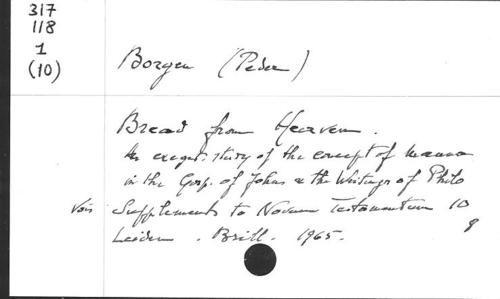 317
118
1
(10)
Borgen (Peder)
Bread from Heaven.
An exeget. study of the concept of manna
in the Gosp. of John & the Writings of Philo
Voir Supplements to Novum Testamentum 10
Leiden. Brill. 1965.